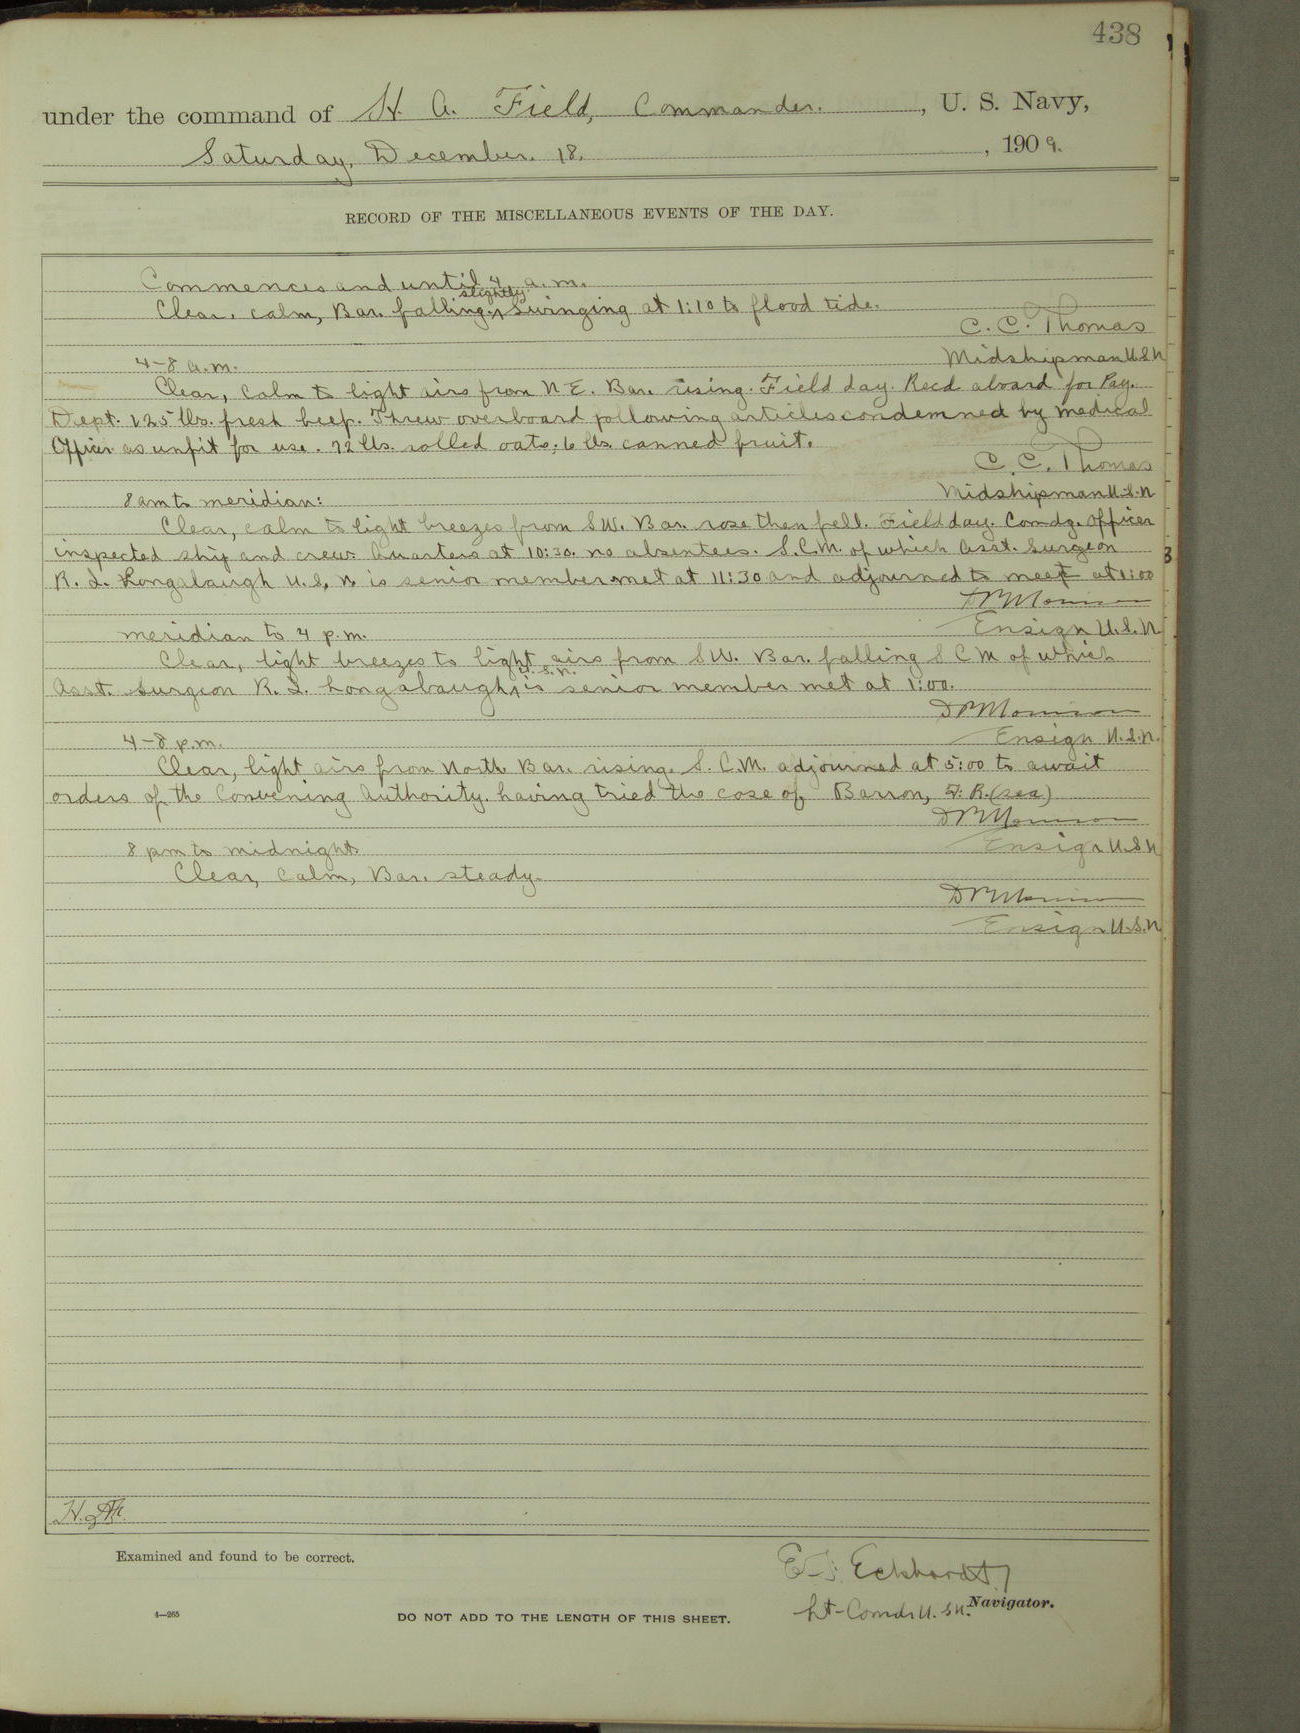 438
under the command of H. A. Field, Commander. , U. S. Navy,
Saturday, December. 18. , 1909.
RECORD OF THE MISCELLANEOUS EVENTS OF THE DAY.
Commences and until 4 a.m.
Clear, calm, Bar. falling slightly. Swinging at 1:10 to flood tide.
C. C. Thomas
Midshipman U.S.N
4-8 a.m.
Clear, calm to light airs from N E. Bar. rising. Field day. Recd aboard for Pay.
Dept. 125 lbs. fresh beef. Threw overboard following articles condemned by Medical
Officer as unfit for use. 72 lbs. rolled oats; 6 lbs canned fruit.
C. C. Thomas
Midshipman U.S.N
8 am to meridian:
Clear, calm to light breezes from SW. Bar. rose then fell. Field day. Comdg. Officer
inspected ship and crew. Quarters at 10:30. no absentees. S.C.M. of which Asst. Surgeon
R. L. Longabaugh U.S.N. is senior member met at 11:30 and adjourned to meet at 1:00
Ensign U.S.N.
meridian to 4 p.m.
Clear, light breezes to light airs from SW. Bar. falling S C M of which
Asst. Surgeon R. L. Longabaugh, U.S.N. is senior member met at 1:00.
Ensign U.S.N.
4-8 p.m.
Clear, light airs from North Bar. rising. S.C.M. adjourned at 5:00 to await
orders of the Convening Authority. having tried the case of Barron, J. R. (sea)
Ensign U.S.N
8 pm to midnight
Clear, Calm, Bar. steady.
Ensign U.S.N
Examined and found to be correct.
Eckhardt
Lt-Comdr U.S.N. Navigator.
4—265
DO NOT ADD TO THE LENGTH OF THIS SHEET.